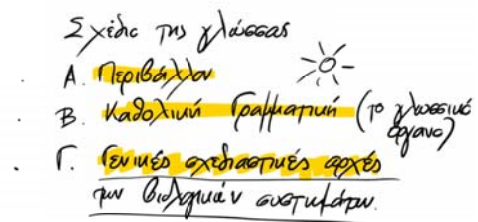 Σχέδιο της γλώσσας
Α. Περιβάλλον
Β. Καθολική Γραμματική (το γλωσσικό
όργανο)
Γ. Γενικές σχεδιαστικές αρχές
των βιολογικών συστημάτων.